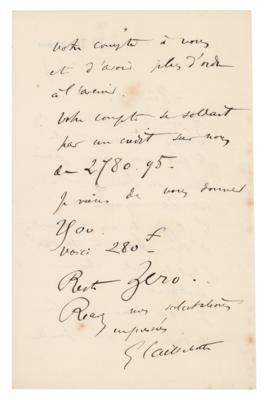 votre compte à vous
et d'avoir plus d'ordre
à l'avenir.
Votre compte se soldait
par un crédit sur nous
de 2780.95.
Je viens de vous donner
voici 280 f
Reste Zero.
nos salutations
empressées
G Caillebotte